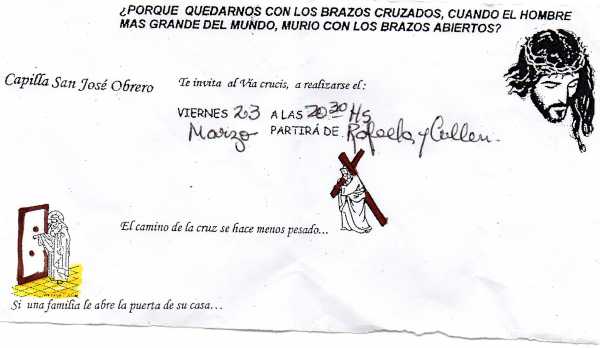 ¿PORQUE QUEDARNOS CON LOS BRAZOS CRUZADOS, CUANDO EL HOMBRE
MAS GRANDE DEL MUNDO, MURIO CON LOS BRAZOS ABIERTOS?
Capilla San José Obrero
Te invita al Vía crucis, a realizarse el:
VIERNES 23 A LAS 20.30 HS
Marzo PARTIRÁ DE Rafaela y Cullen.
El camino de la cruz se hace menos pesado...
Si una familia le abre la puerta de su casa...